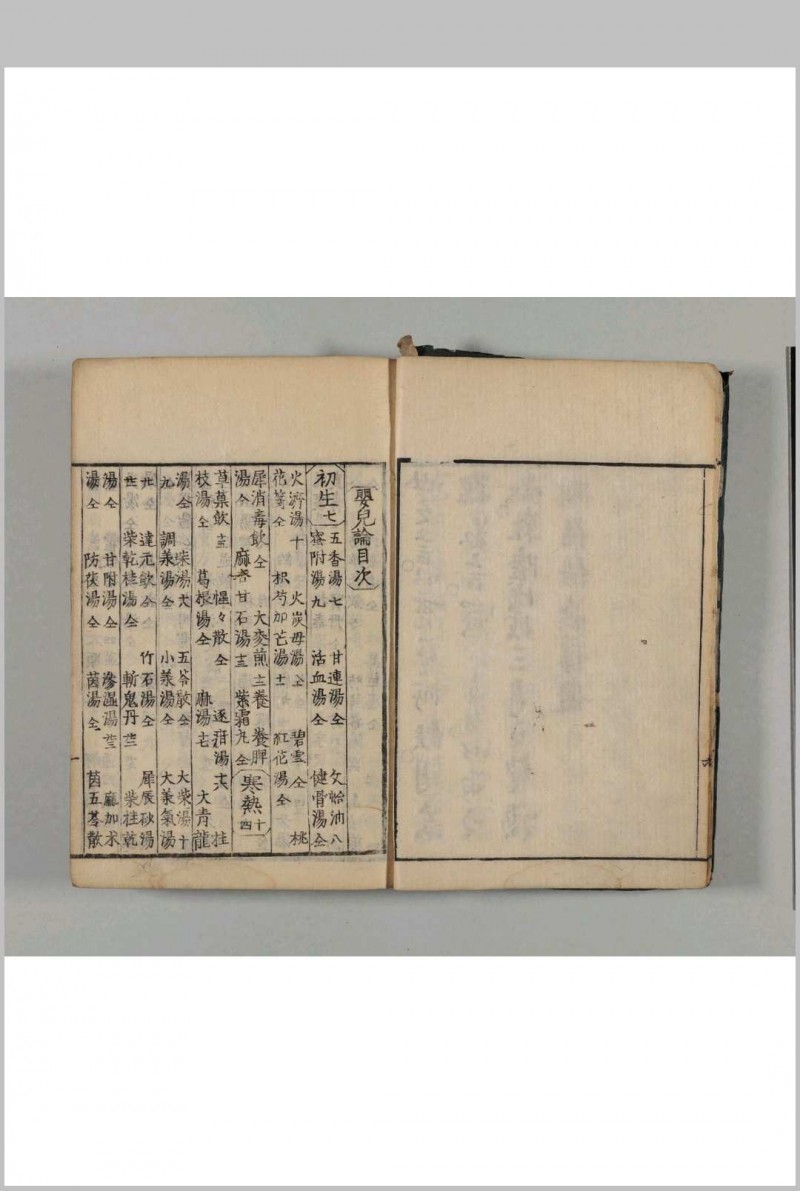 嬰兒論目次
初生七
五香湯七 甘連湯仝 文蛤油八
蜜附湯九 活血湯仝 健骨湯仝
火濟湯十 火炭母湯仝 碧雪仝 桃
花湯仝 枳芍加芒湯十一 紅花湯仝
犀消毒飲仝 大麥煎十二 養脾
湯仝 麻杏甘石湯十三 紫霜丸仝
寒熱十四
草菓飲 惺々散仝 逐瘖湯 桂
枝湯仝 葛根湯仝 麻湯 大青龍
湯仝 柴湯 五苓散仝 大柴湯十
九 調羕湯仝 小羕湯仝 大羕氣湯
廿 達元飲仝 竹石湯仝 犀辰砂湯
柴乾桂湯仝 斬鬼丹 柴桂乾
湯仝 甘附湯仝 滲濕湯 麻加术
湯仝 防茯湯仝 茵湯仝 茵五苓散